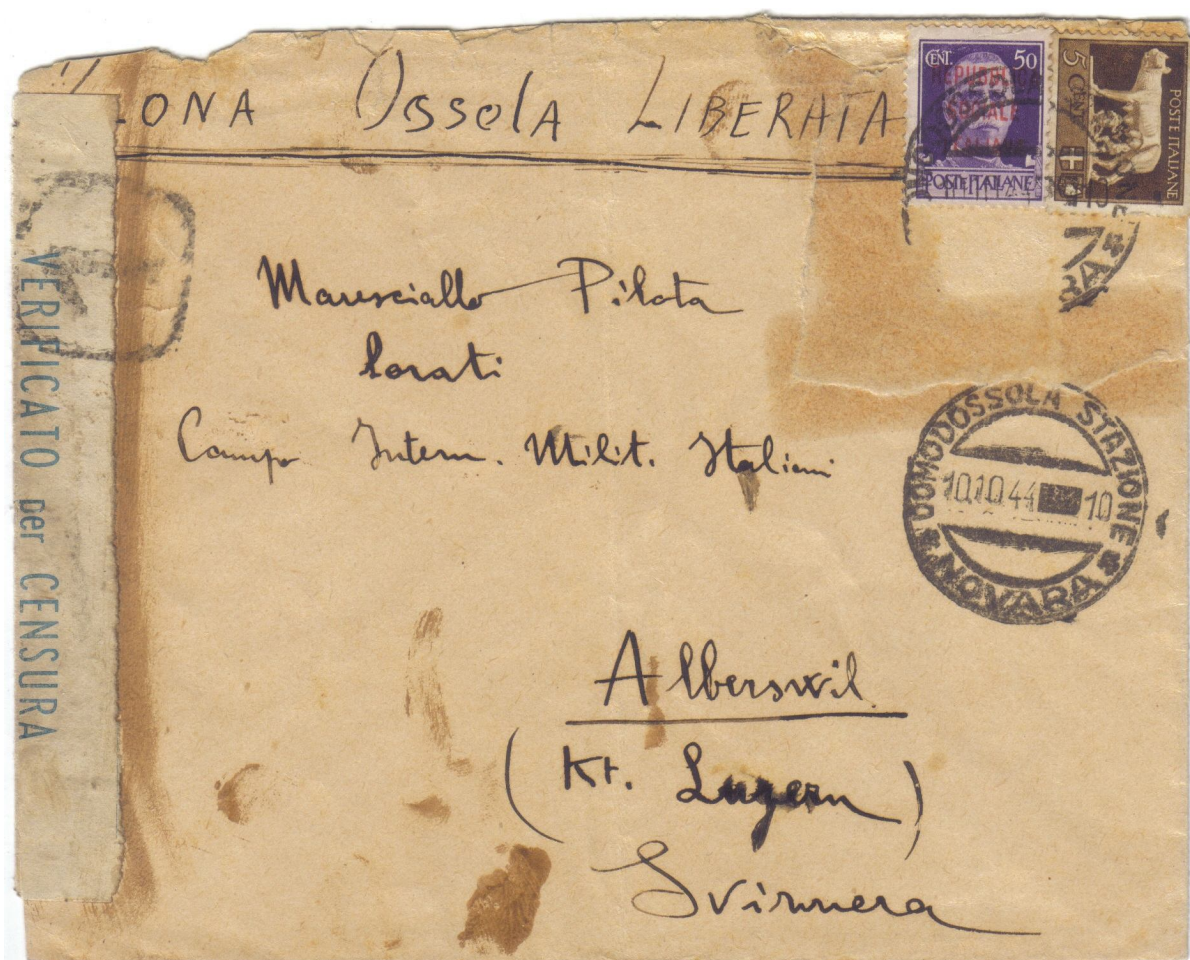 ZONA OssolA LIBERATA
CENT. 50
REPUBBLICA
SOCIALE
ITALIANA
POSTE ITALIANE
5 CENT
POSTE ITALIANE
VERIFICATO per CENSURA
Maresciallo Pilota
Lorati
Campo Intern. Milit. Italiani
DOMODOSSOLA STAZIONE
10.10.44 10
NOVARA
Alberswil
(Kt. Luzern)
Svizzera